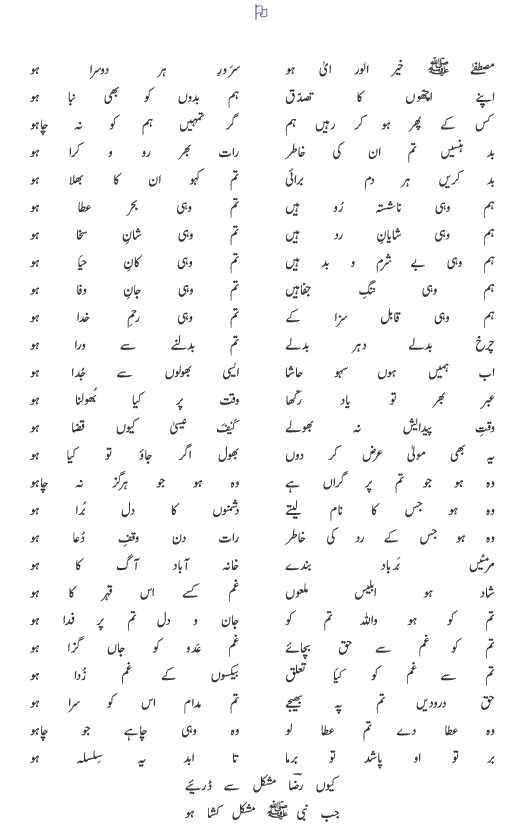 مصطفیٰ ﷺ خیر الوریٰ ہو سرورِ ہر دوسرا ہو
اپنے اچھوں کا تصدق ہم بدوں کو بھی نبا ہو
کس کے پھر ہو کر رہیں ہم گر تمہیں ہم کو نہ چاہو
بد ہنسیں تم ان کی خاطر رات بھر رو و کرا ہو
بد کریں ہر دم برائی تم کہو ان کا بھلا ہو
ہم وہی ناشستہ رُو ہیں تم وہی بحر عطا ہو
ہم وہی شایانِ رد ہیں تم وہی شانِ سخا ہو
ہم وہی بے شرم و بد ہیں تم وہی کانِ حیا ہو
ہم وہی ننگِ جفاہیں تم وہی جانِ وفا ہو
ہم وہی قابل سزا کے تم وہی رحمِ خدا ہو
چرخ بدلے دہر بدلے تم بدلنے سے ورا ہو
اب ہمیں ہوں سہو حاشا ایسی بھولوں سے جُدا ہو
عمر بھر تو یاد رکھا وقت پر کیا بُھولنا ہو
وقتِ پیدایش نہ بھولے کَیْفَ یَنسیٰ کیوں قضا ہو
یہ بھی مولیٰ عرض کر دوں بھول اگر جاؤ تو کیا ہو
وہ ہو جو تم پر گراں ہے وہ ہو جو ہرگز نہ چاہو
وہ ہو جس کا نام لیتے دشمنوں کا دل بُرا ہو
وہ ہو جس کے رد کی خاطر رات دن وقفِ دُعا ہو
مرمٹیں بَرباد بندے خانہ آباد آگ کا ہو
شاد ہو ابلیس ملعوں غم کسے اس قہر کا ہو
تم کو ہو واللہ تم کو جان و دل تم پر فدا ہو
تم کو غم سے حق بچائے غم عَدو کو جاں گزا ہو
تم سے غم کو کیا تعلق بیکسوں کے غم زُدا ہو
حق درودیں تم پہ بھیجے تم مدام اس کو سرا ہو
وہ عطا دے تم عطا لو وہ وہی چاہے جو چاہو
بر تو او پاشد تو برما تا ابد یہ سِلسلہ ہو
کیوں رضاؔ مشکل سے ڈریئے
جب نبی ﷺ مشکل کشا ہو